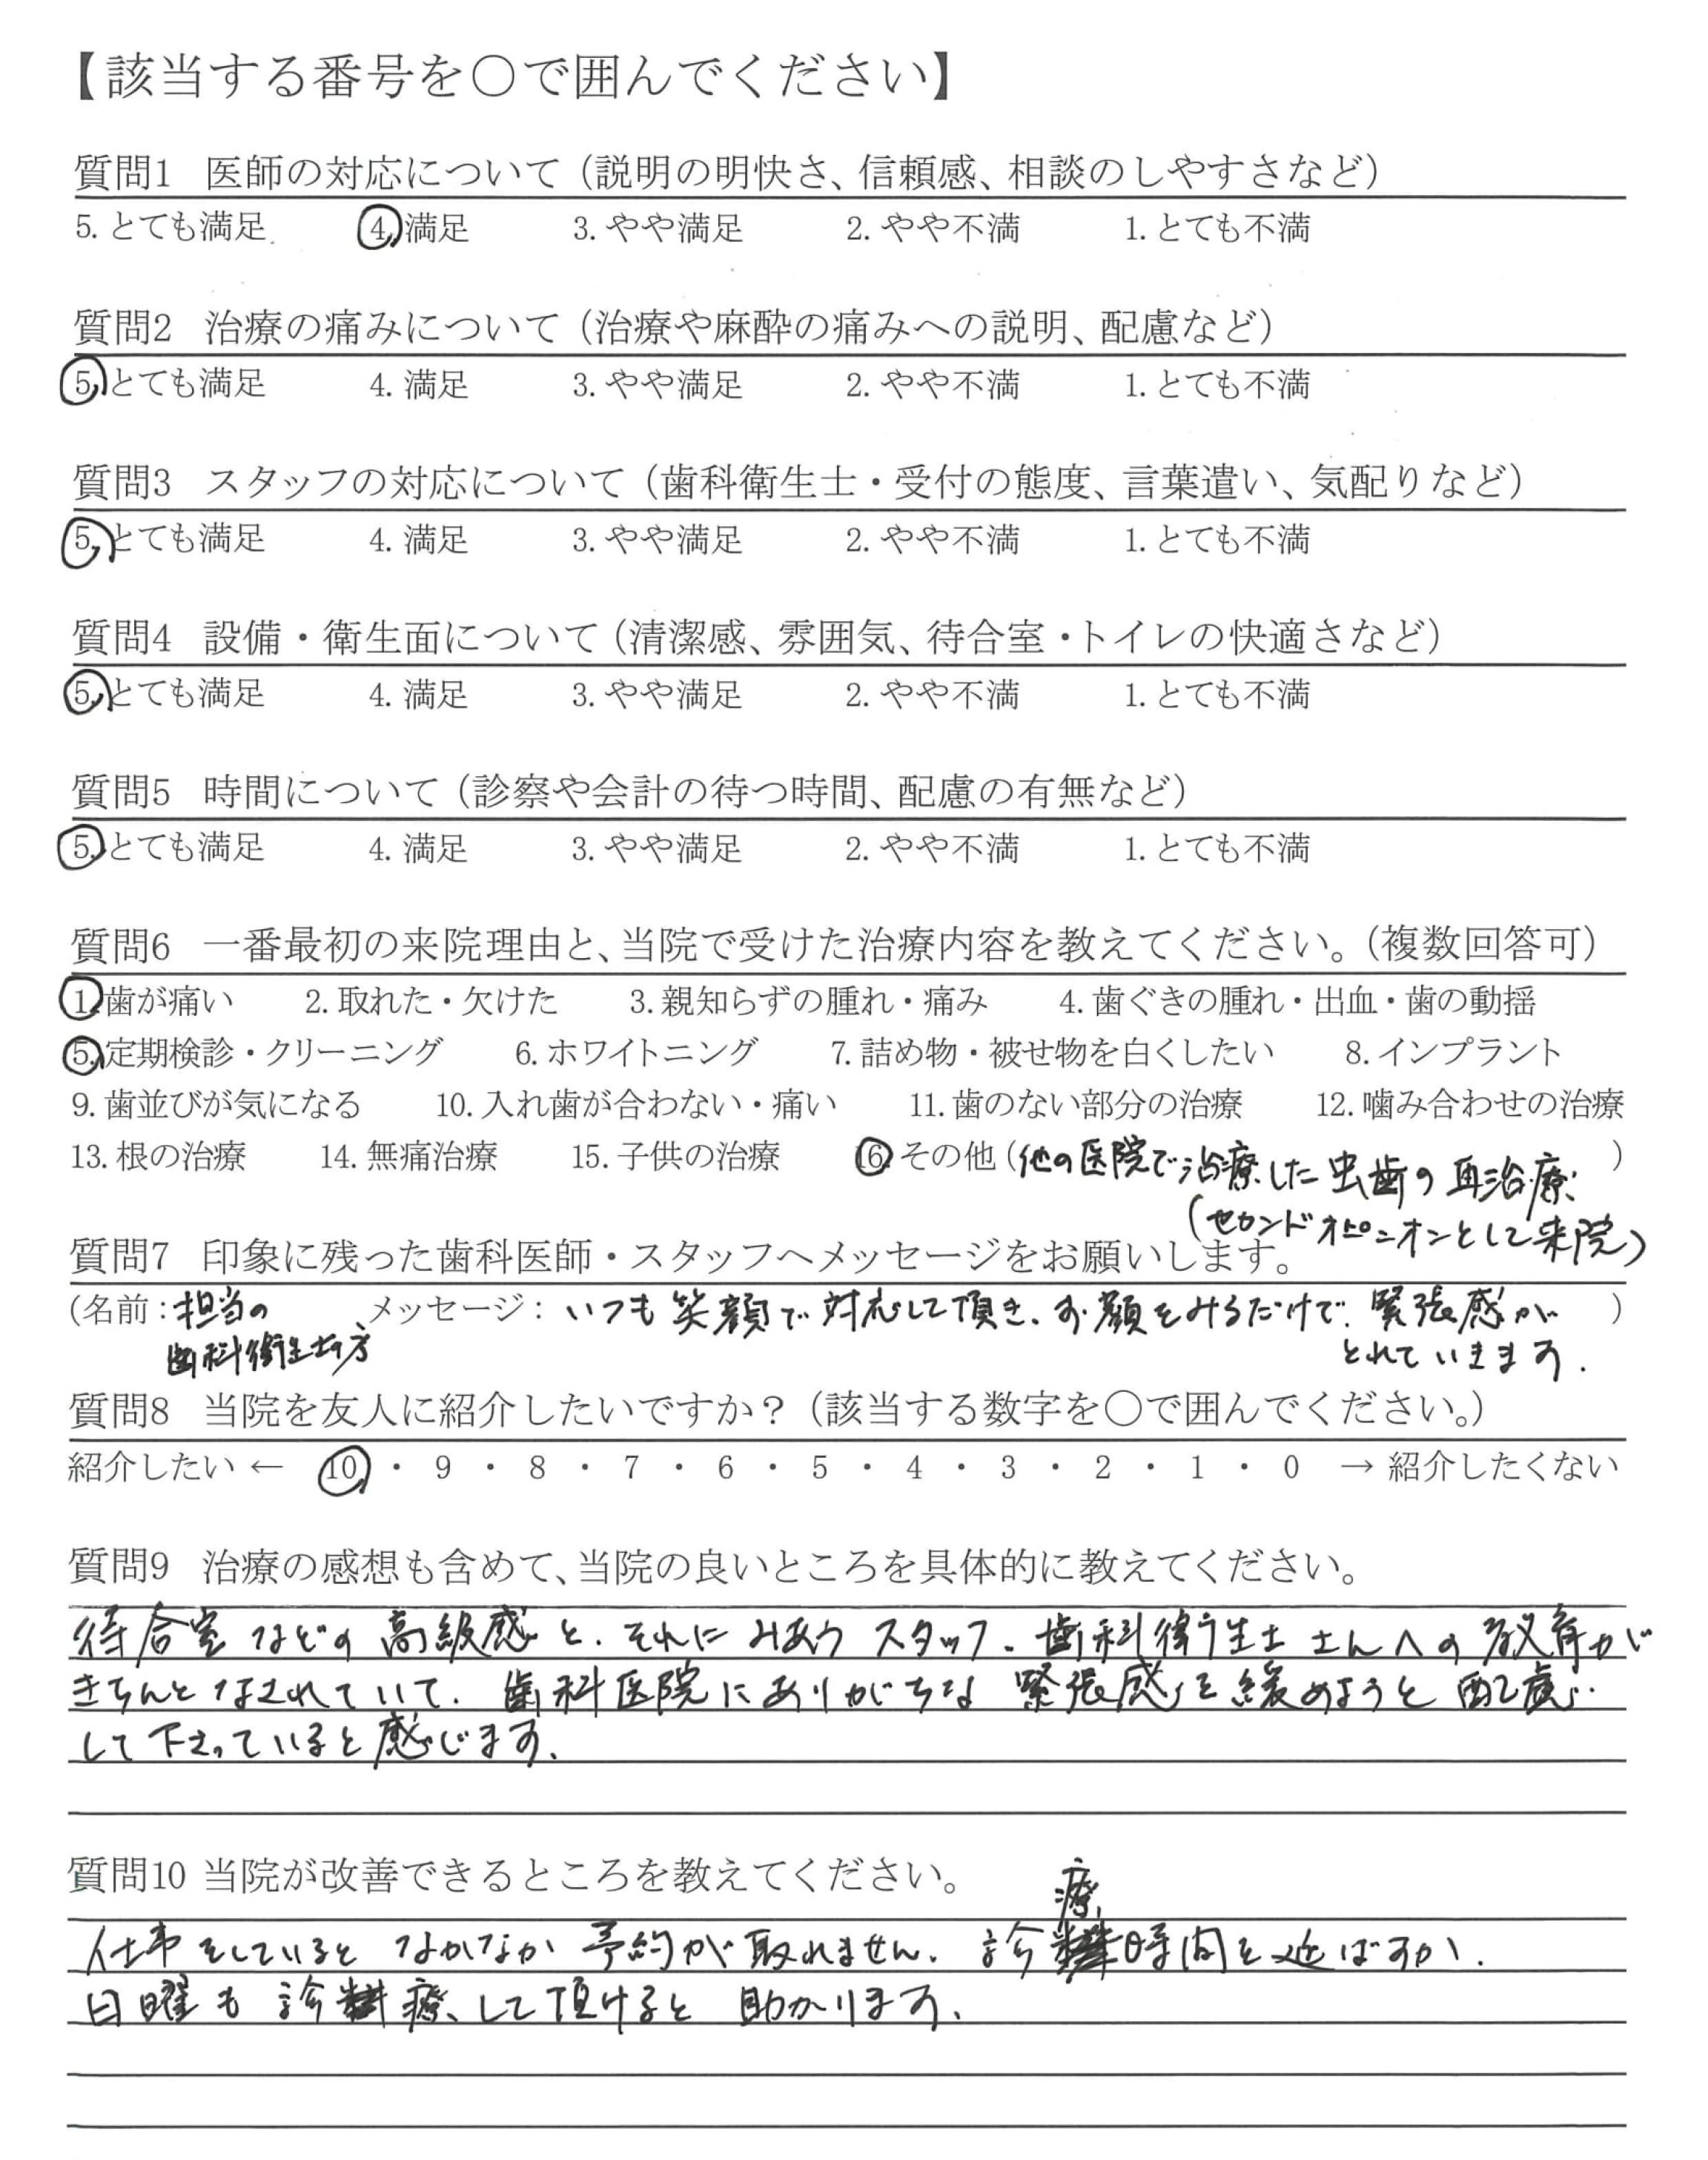 【該当する番号を○で囲んでください】
質問1 医師の対応について（説明の明快さ、信頼感、相談のしやすさなど）
5. とても満足 4. 満足 3. やや満足 2. やや不満 1. とても不満
質問2 治療の痛みについて（治療や麻酔の痛みへの説明、配慮など）
5. とても満足 4. 満足 3. やや満足 2. やや不満 1. とても不満
質問3 スタッフの対応について（歯科衛生士・受付の態度、言葉遣い、気配りなど）
5. とても満足 4. 満足 3. やや満足 2. やや不満 1. とても不満
質問4 設備・衛生面について（清潔感、雰囲気、待合室・トイレの快適さなど）
5. とても満足 4. 満足 3. やや満足 2. やや不満 1. とても不満
質問5 時間について（診察や会計の待つ時間、配慮の有無など）
5. とても満足 4. 満足 3. やや満足 2. やや不満 1. とても不満
質問6 一番最初の来院理由と、当院で受けた治療内容を教えてください。（複数回答可）
1. 歯が痛い 2. 取れた・欠けた 3. 親知らずの腫れ・痛み 4. 歯ぐきの腫れ・出血・歯の動揺
5. 定期検診・クリーニング 6. ホワイトニング 7. 詰め物・被せ物を白くしたい 8. インプラント
9. 歯並びが気になる 10. 入れ歯が合わない・痛い 11. 歯のない部分の治療 12. 噛み合わせの治療
13. 根の治療 14. 無痛治療 15. 子供の治療 16. その他（他の医院で治療した虫歯の再治療、）
（セカンドオピニオンとして来院）
質問7 印象に残った歯科医師・スタッフへメッセージをお願いします。
（名前：担当の メッセージ：いつも笑顔で対応して頂き、お顔をみるだけで、緊張感が）
歯科衛生士の方 とれていきます．
質問8 当院を友人に紹介したいですか？（該当する数字を○で囲んでください。）
紹介したい ← 10 ・ 9 ・ 8 ・ 7 ・ 6 ・ 5 ・ 4 ・ 3 ・ 2 ・ 1 ・ 0 → 紹介したくない
質問9 治療の感想も含めて、当院の良いところを具体的に教えてください。
待合室などの高級感と、それにみあうスタッフ、歯科衛生士さんへの教育が
きちんとなされていて、歯科医院にありがちな緊張感を緩めようと配慮
して下さっていると感じます、
質問10 当院が改善できるところを教えてください。
仕事をしているとなかなか予約が取れません、診療時間を延ばすか、
日曜も診療して頂けると助かります、